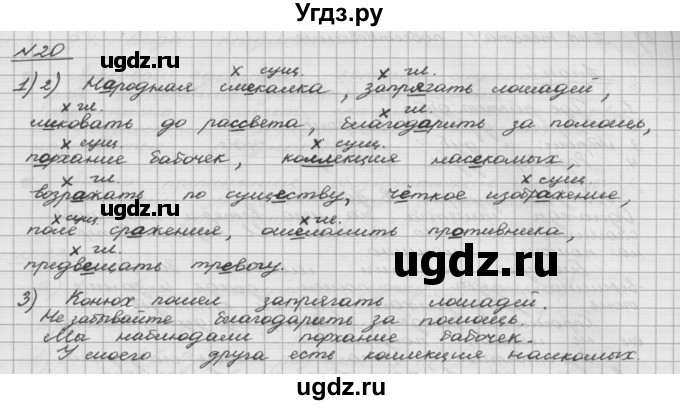 Угдз.ру
N 20
х сущ. х гл.
1)2) Народная смекалка, запрягать лошадей,
х гл. х гл.
ликовать до рассвета, благодарить за помощь,
х сущ х сущ.
порхание бабочек, коллекция насекомых,
х гл. х сущ.
возражать по существу, чёткое изображение,
х сущ х гл.
поле сражения, ошеломить противника,
х гл.
предвещать тревогу.
3) Конюх пошел запрягать лошадей.
Не забывайте благодарить за помощь.
Мы наблюдали порхание бабочек.
У моего друга есть коллекция насекомых
ugdz.ru
ugdz.ru
ugdz.ru
ugdz.ru
ugdz.ru
ugdz.ru
ugdz.ru